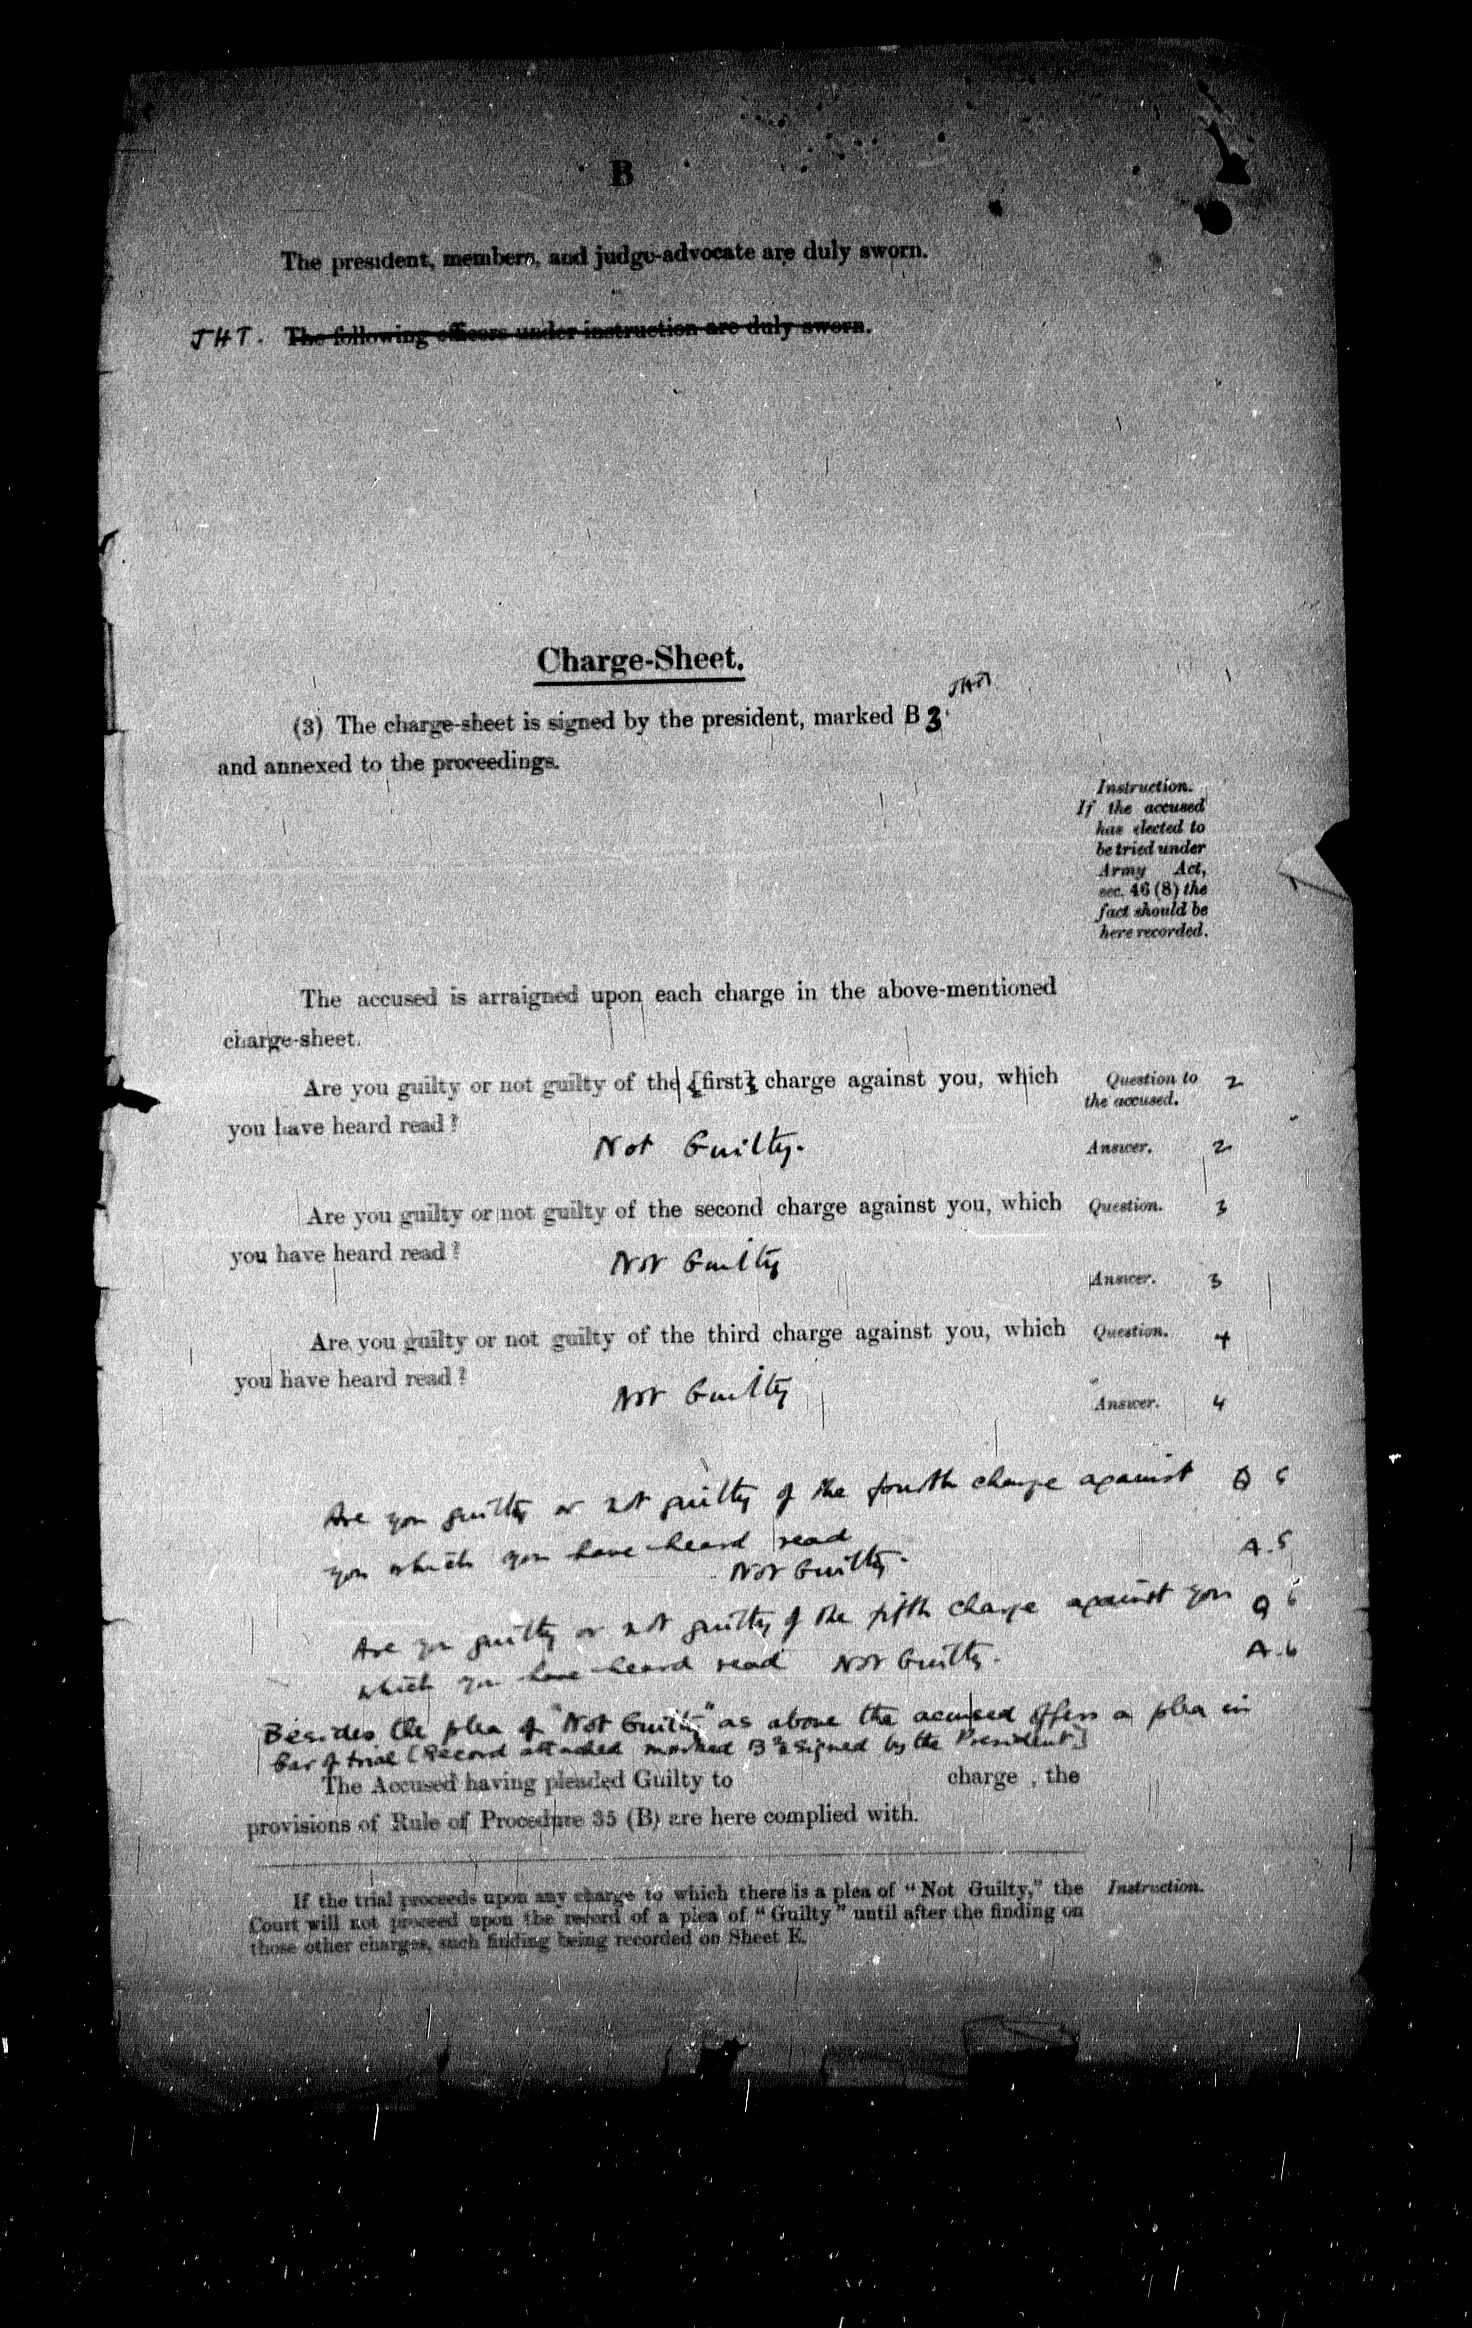 B
The president, members, and judge-advocate are duly sworn.
JHT. The following officers under instruction are duly sworn.
Charge-Sheet.
JHT
(3) The charge-sheet is signed by the president, marked B 3
and annexed to the proceedings.
Instruction.
If the accused
has elected to
be tried under
Army Act,
sec. 46 (8) the
fact should be
here recorded.
The accused is arraigned upon each charge in the above-mentioned
charge-sheet.
Are you guilty or not guilty of the [first] charge against you, which
Question to 2
the accused.
you have heard read?
Not Guilty.
Answer. 2
Are you guilty or not guilty of the second charge against you, which
Question. 3
you have heard read?
Not Guilty
Answer. 3
Are you guilty or not guilty of the third charge against you, which
Question. 4
you have heard read?
Not Guilty
Answer. 4
Are you guilty or not guilty of the fourth charge against Q 5
you which you have heard read
Not Guilty. A. 5
Are you guilty or not guilty of the fifth charge against you Q 6
which you have heard read Not Guilty. A. 6
Besides the plea of "Not Guilty" as above the accused offers a plea in
bar of trial [Record attached marked B signed by the President]
The Accused having pleaded Guilty to charge , the
provisions of Rule of Procedure 35 (B) are here complied with.
If the trial proceeds upon any charge to which there is a plea of "Not Guilty," the
Instruction.
Court will not proceed upon the record of a plea of "Guilty" until after the finding on
those other charges, such finding being recorded on Sheet E.